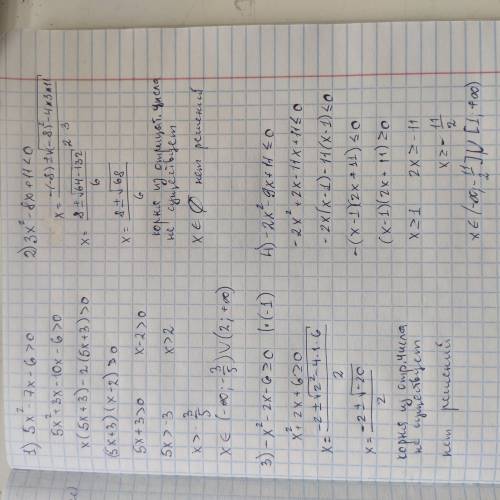 1) 5x² - 7x - 6 > 0
5x² + 3x - 10x - 6 > 0
x(5x+3) - 2(5x+3) > 0
(5x+3)(x-2) > 0
5x+3>0 x-2>0
5x>-3 x>2
x>-3/5
x ∈ (-∞; -3/5) ∪ (2; +∞)
2) 3x² - 8x + 11 < 0
x = -(-8) ± √(-8)² - 4×3×11 / 2·3
x = 8 ± √64-132 / 6
x = 8 ± √-68 / 6
корня из отрицат. числа
не существует
x ∈ ∅ нет решений
3) -x² - 2x - 6 ≥ 0 |·(-1)
x² + 2x + 6 ≥ 0
x = -2 ± √2² - 4·1·6 / 2
x = -2 ± √-20 / 2
корня из отр. числа
не существует
нет решений
4) -2x² - 9x + 11 ≤ 0
-2x² + 2x - 11x + 11 ≤ 0
-2x(x-1) - 11(x-1) ≤ 0
-(x-1)(2x+11) ≤ 0
(x-1)(2x+11) ≥ 0
x ≥ 1 2x ≥ -11
x ≥ -11/2
x ∈ (-∞; -11/2] ∪ [1, +∞)